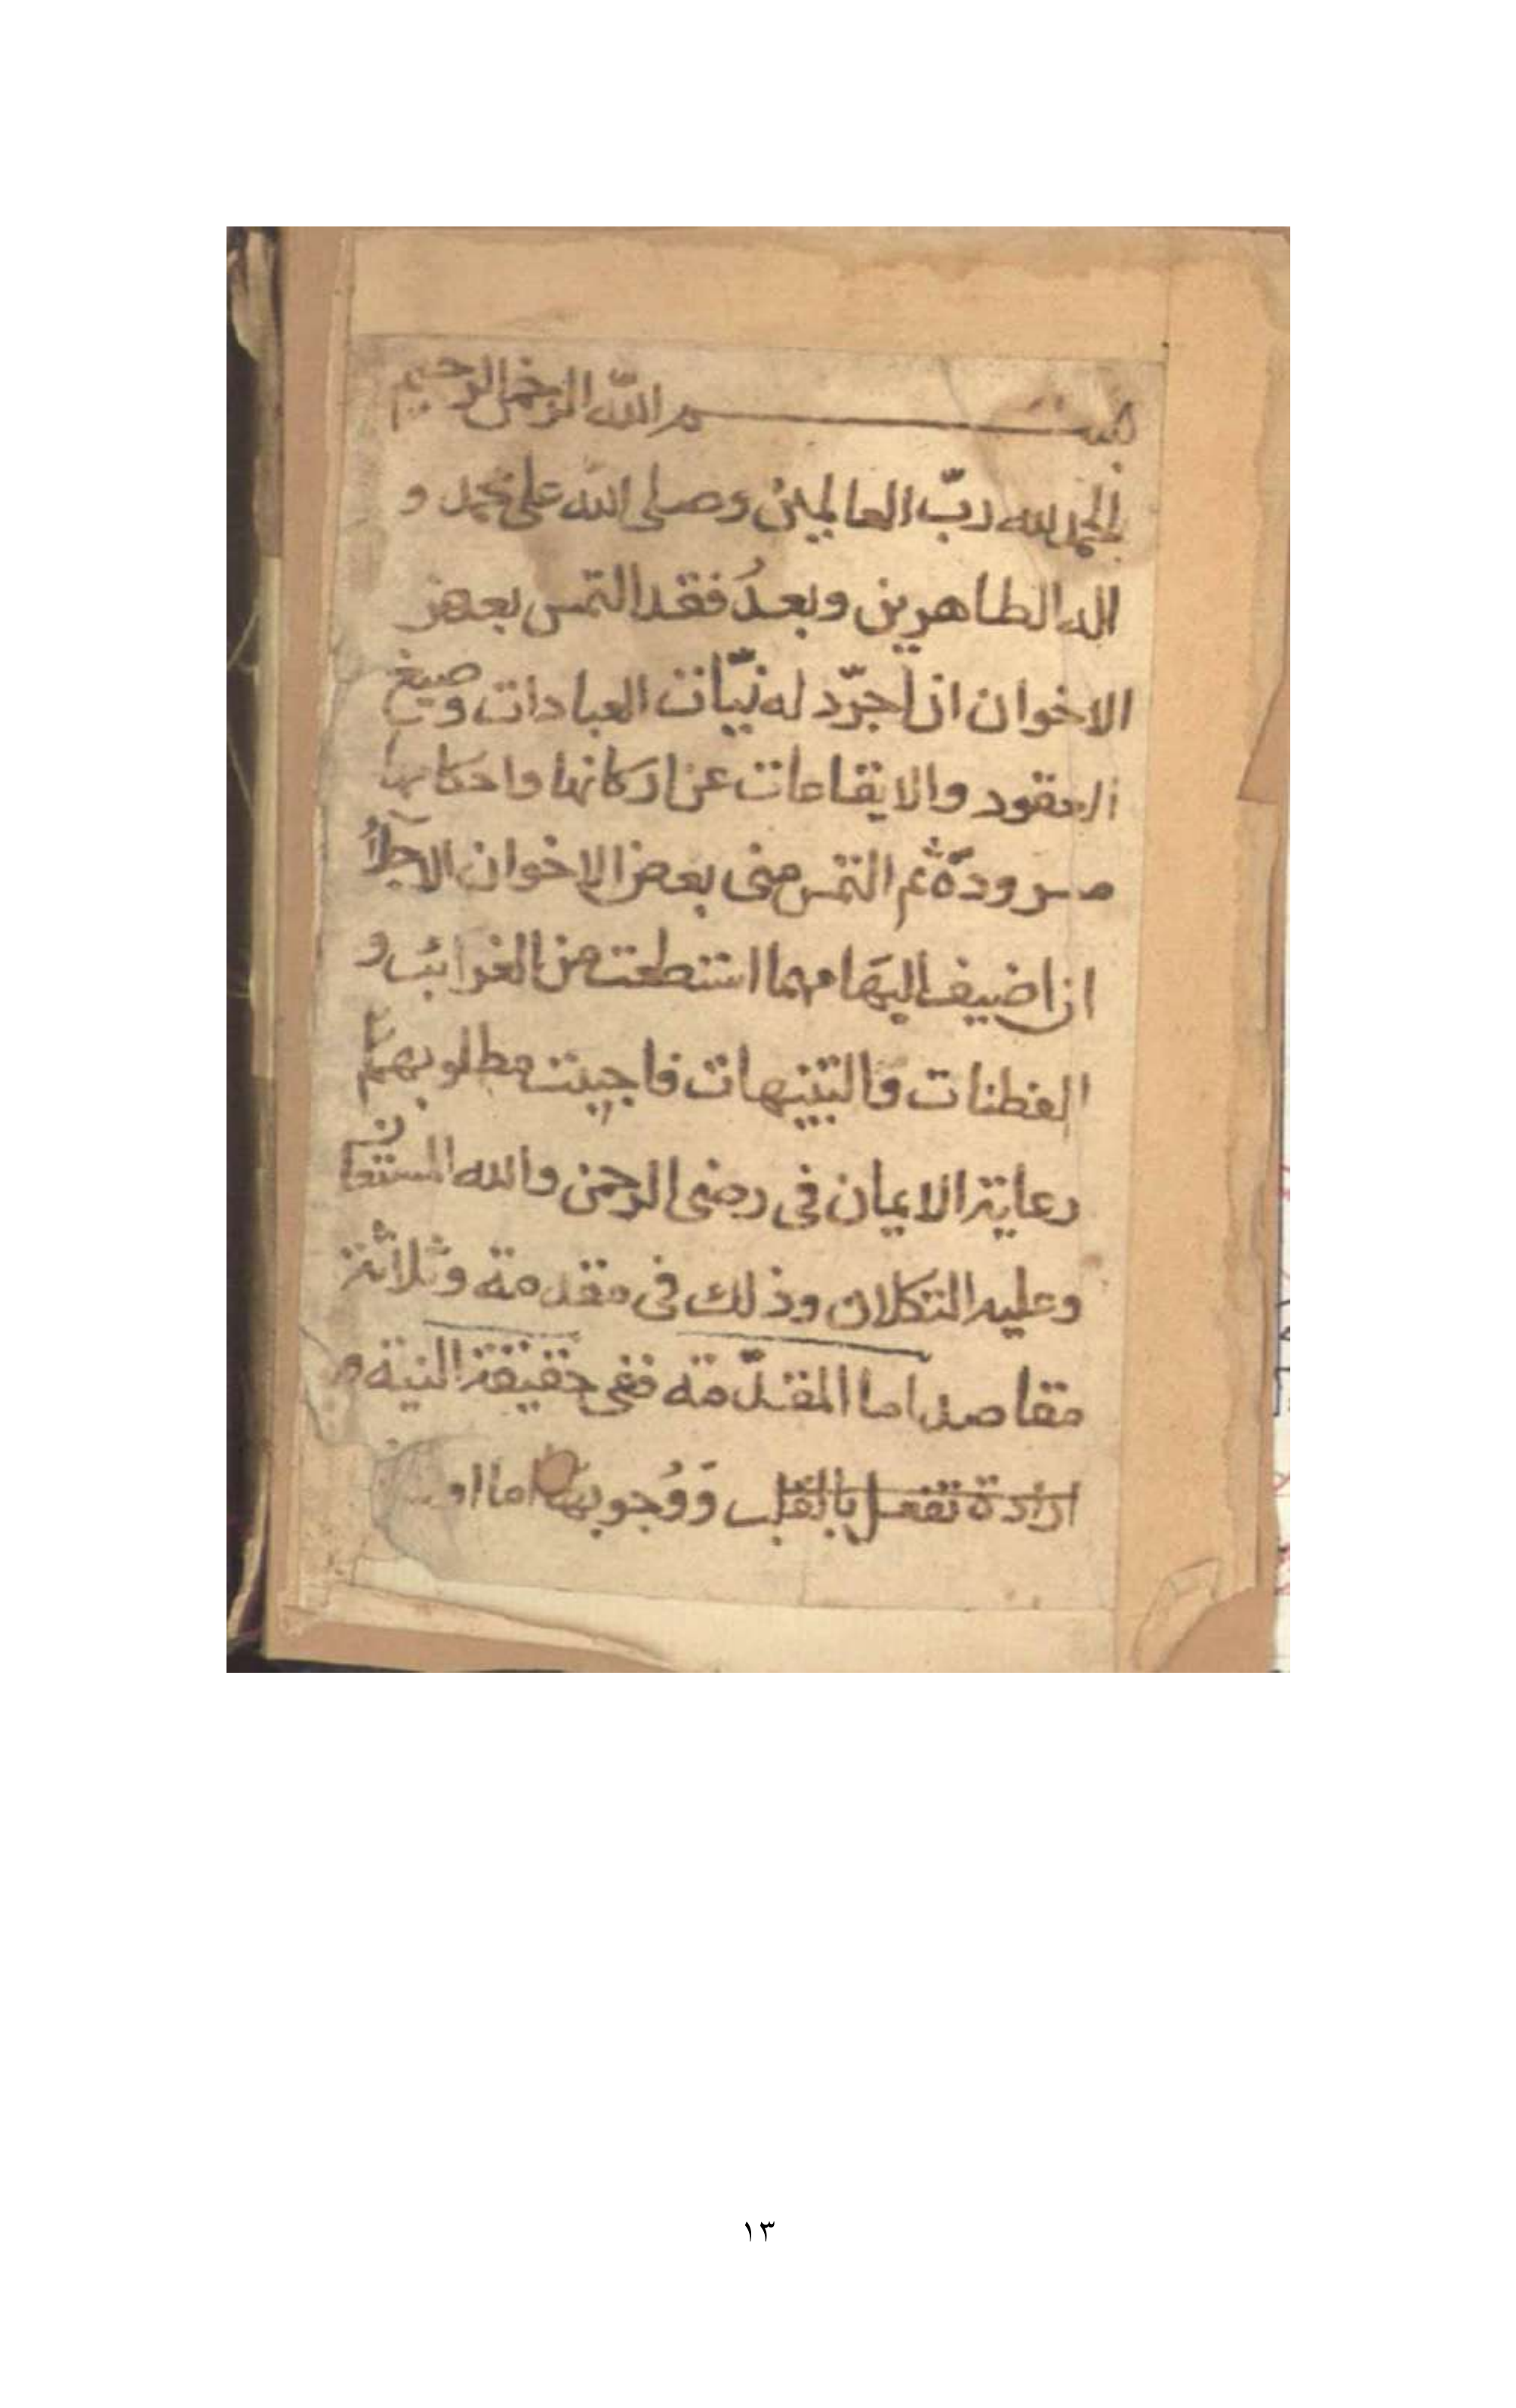 بسم الله الرحمن الرحيم
الحمد لله ربّ العالمين وصلى الله على محمد و
اله الطاهرين وبعدُ فقد التمس بعض
الاخوان ان اجرّد له نيّات العبادات وصيغ
العقود والايقاعات عن اركانها واحكامها
مسرودة ثم التمس منى بعض الاخوان الاجلّاء
ان اضيف اليها مهما استطعت من الغرائب و
الفطنات والتنبيهات فاجبت مطلوبهما
رعاية الايمان في رضى الرحمن والله المستعان
وعليه التكلان وذلك في مقدمة وثلاثة
مقاصد اما المقدّمة ففي حقيقة النية
ارادة تفعل بالقلب وَوُجوبها اما
١٣